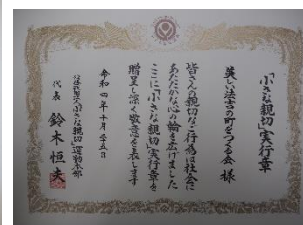 「小さな親切」実行章
美しい法吉の町をつくる会 様
皆さんの親切な行為は社会に
あたたかな心の輪を広げました
ここに「小さな親切」実行章を
贈呈し深く敬意を表します
令和四年十月二十五日
公益社団法人「小さな親切」運動本部
代表 鈴木恒夫